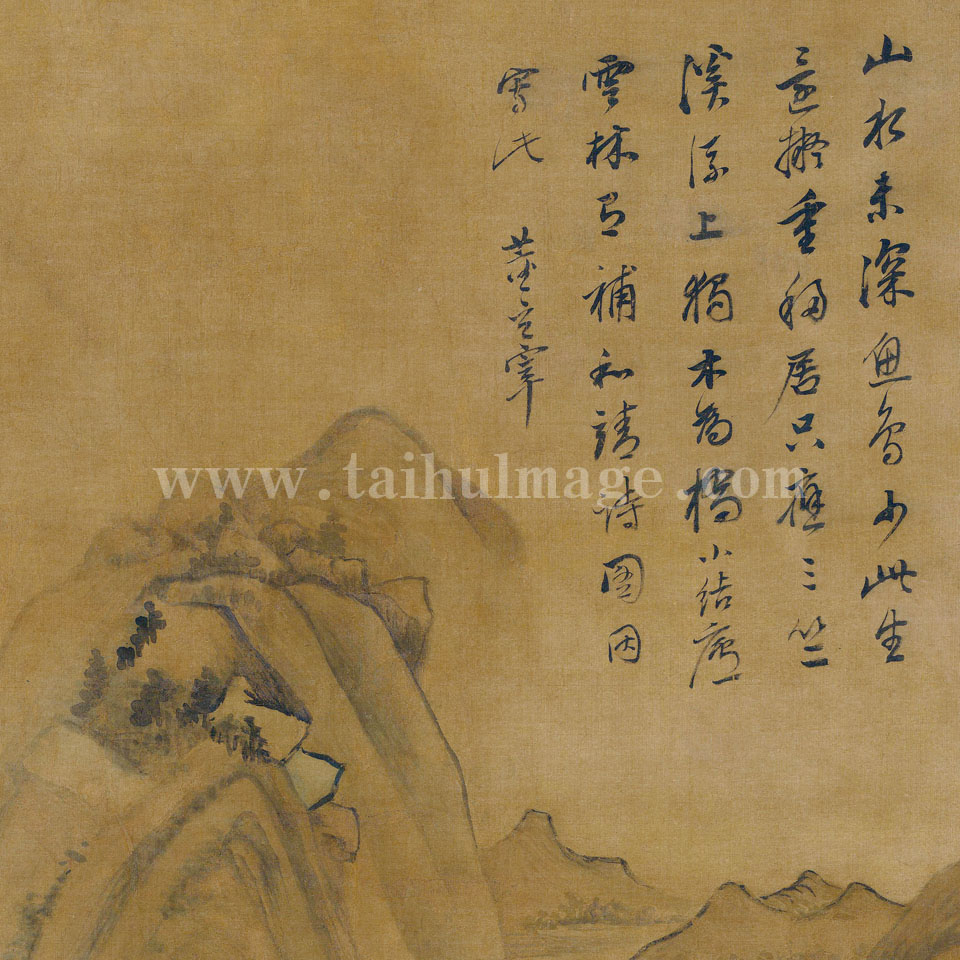 山水未深魚鳥少此生
還擬重移居只應三竺
溪流上獨木為橋小結廬
雲林有補和靖詩圖因
寫此 董玄宰
www.taihuImage.com